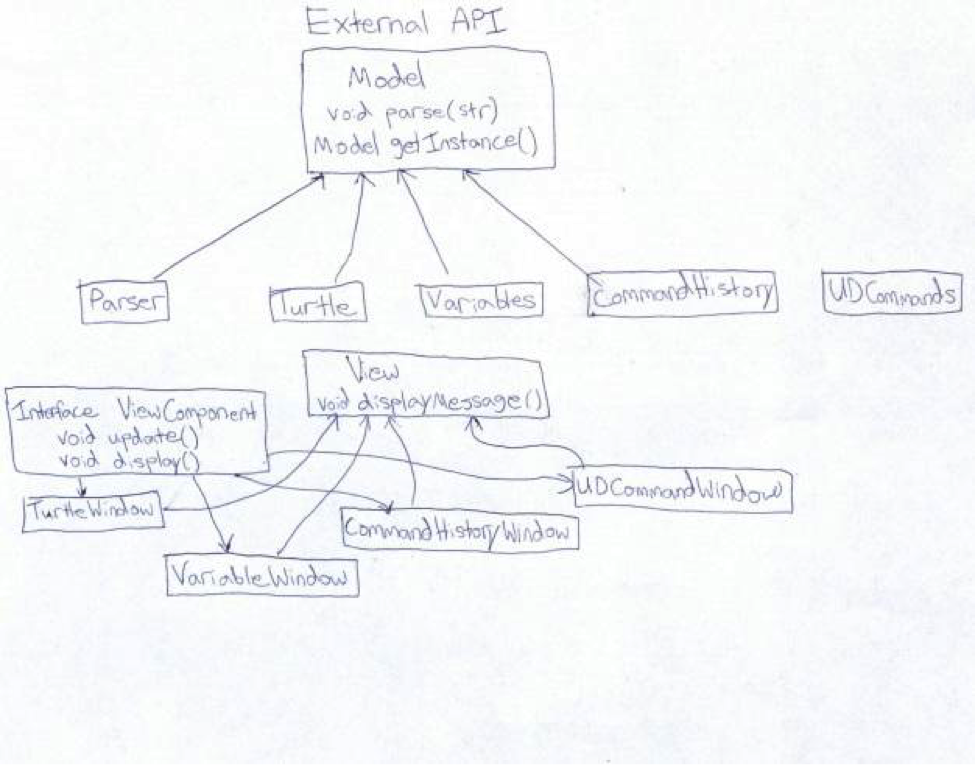 External API
Model
void parse(str)
Model getInstance()
Parser
Turtle
Variables
CommandHistory
UDCommands
View
void displayMessage()
Interface ViewComponent
void update()
void display()
TurtleWindow
VariableWindow
CommandHistoryWindow
UDCommandWindow